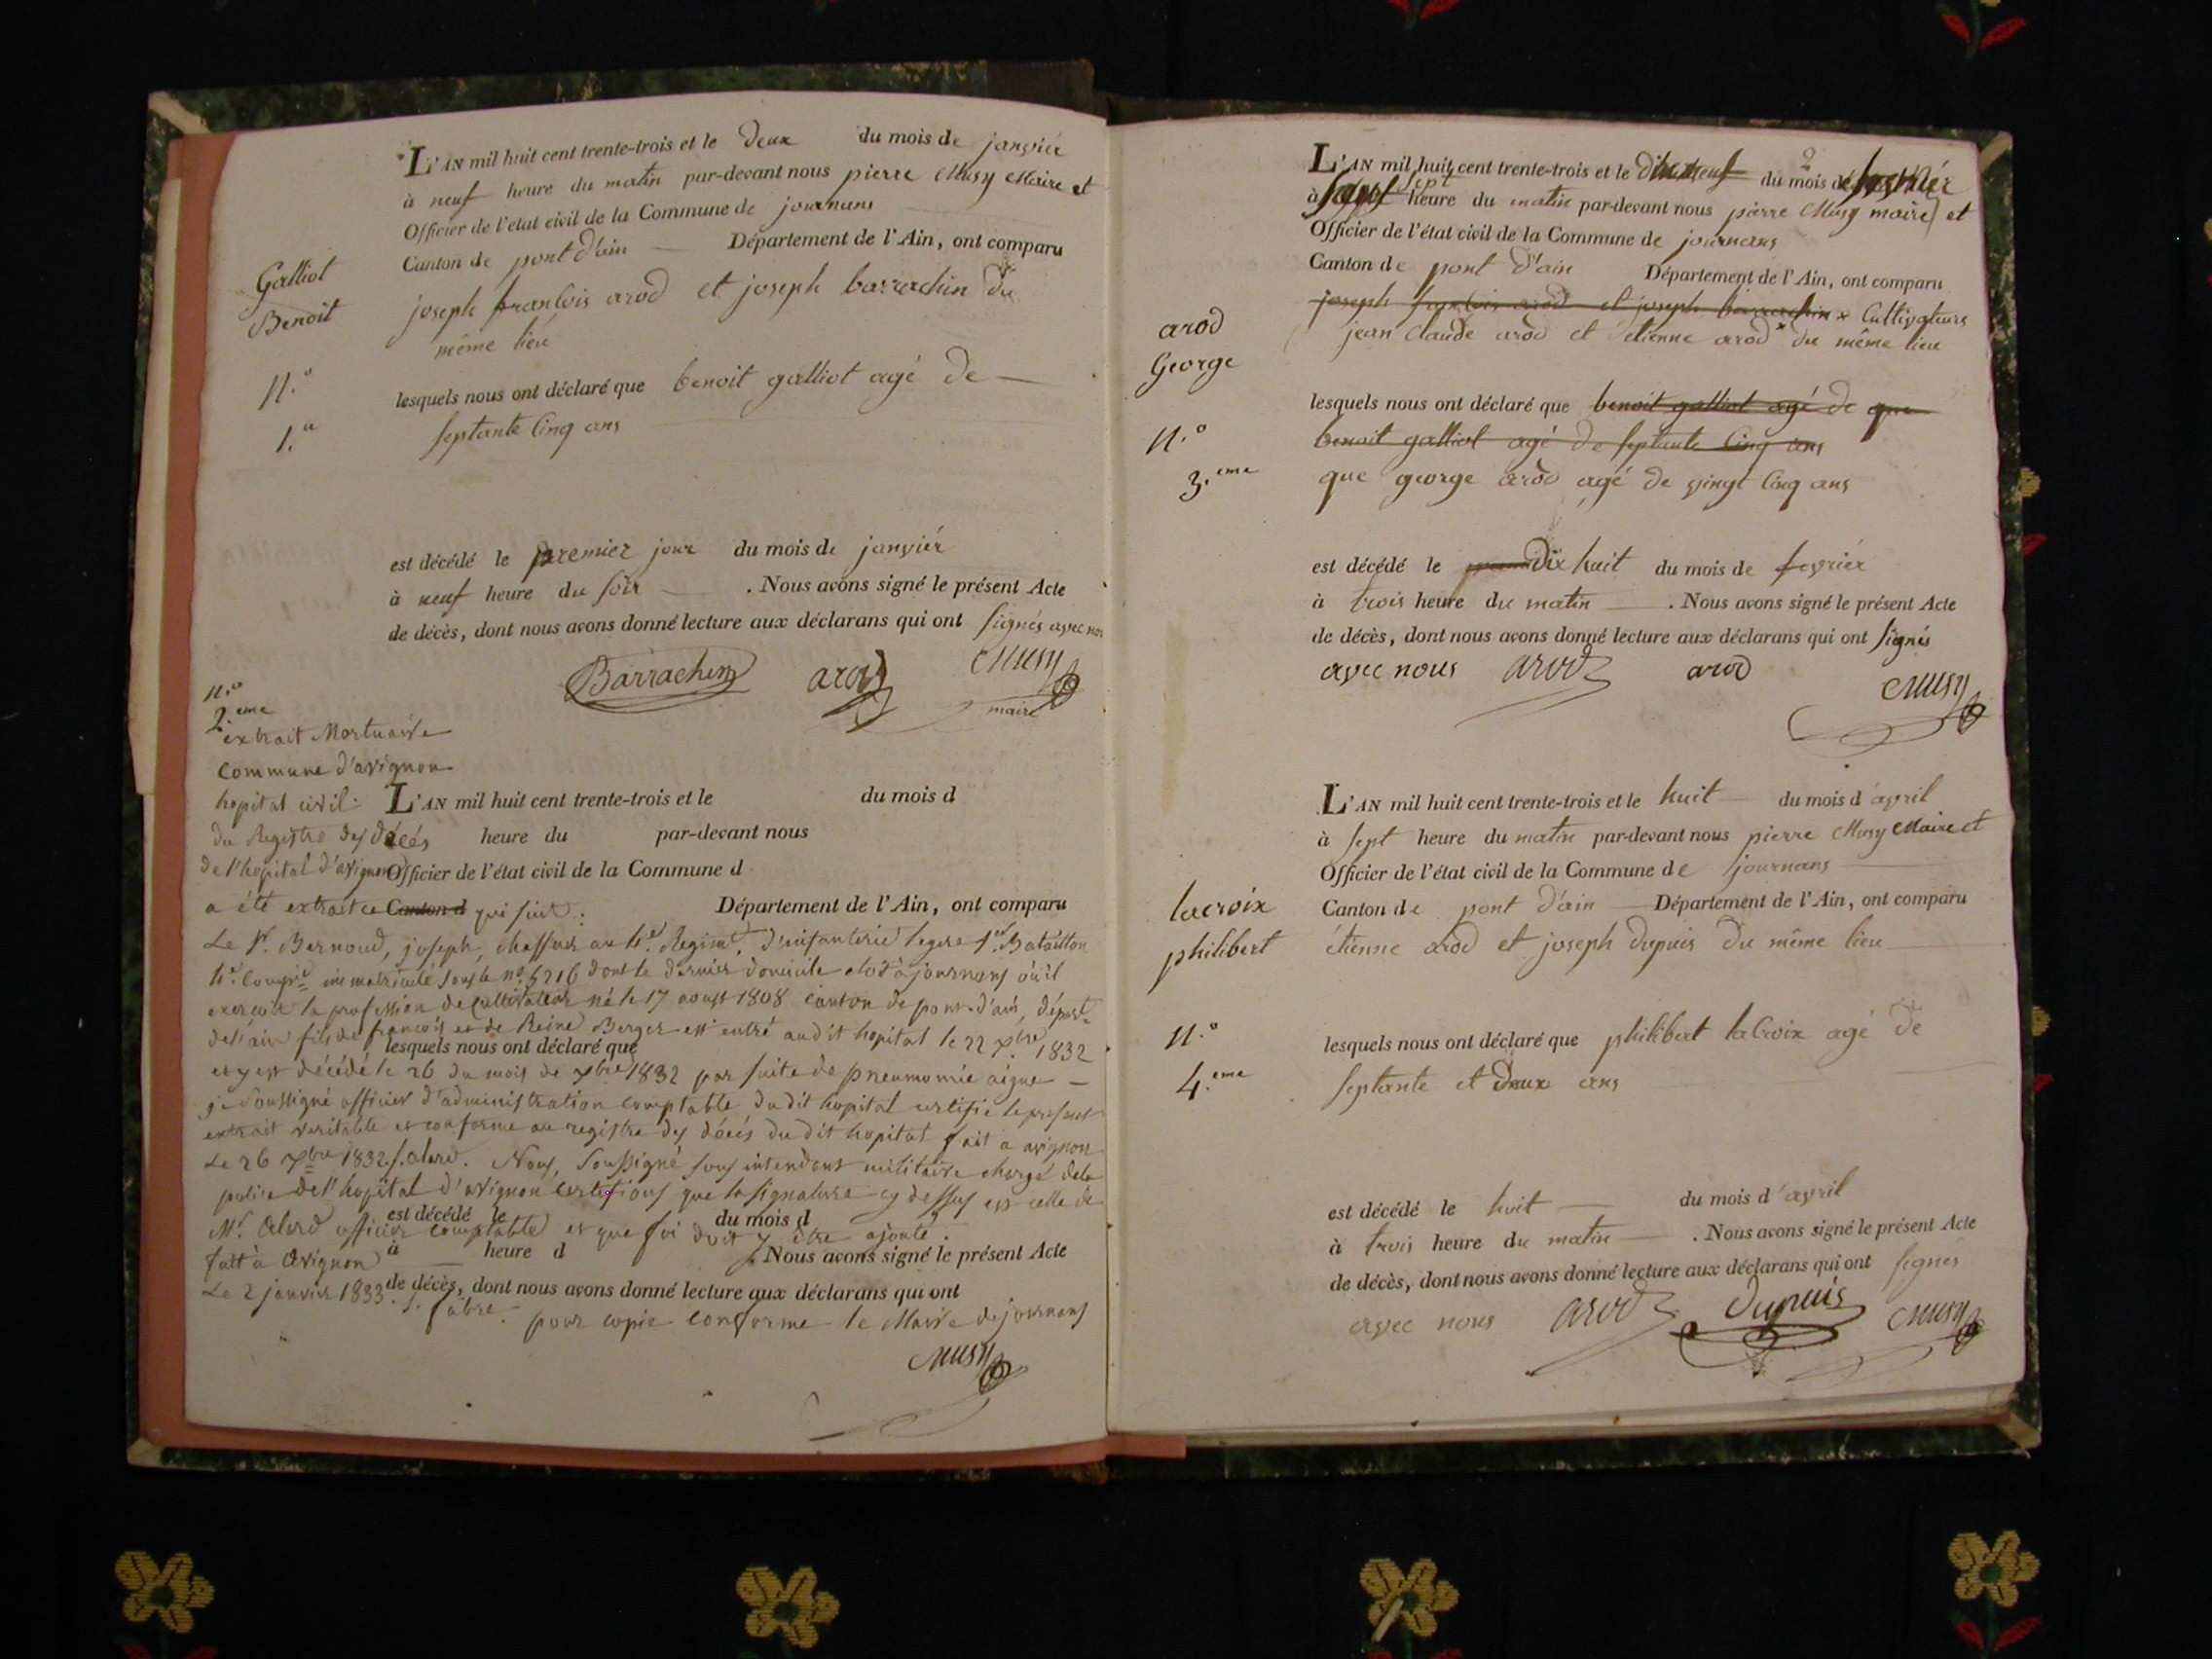 L'AN mil huit cent trente-trois et le deux du mois de janvier
à neuf heure du matin par-devant nous pierre Musy Maire et
Officier de l'état civil de la Commune de journans
Canton de pont d'ain Département de l'Ain, ont comparu
Galliot
Benoit
joseph françois arod et joseph barrachin du
même lieu
N.º
1.er
lesquels nous ont déclaré que benoit galliot agé de
septante Cinq ans
est décédé le premier jour du mois de janvier
à neuf heure du soir . Nous avons signé le présent Acte
de décès, dont nous avons donné lecture aux déclarans qui ont signés avec nous
Barrachin arod Musy
maire
N.º
2.eme
extrait Mortuaire
Commune d'avignon
hopital civil.
L'AN mil huit cent trente-trois et le du mois d
du Registre des décés heure du par-devant nous
de l'hopital d'avignon Officier de l'état civil de la Commune d
a été extrait ce Canton d qui suit : Département de l'Ain, ont comparu
Le Sr. Bernoud, joseph, chasseur au 4e. Regimt. d'infanterie legere 1er. Bataillon
4e. Compie. immatriculé sous le nº. 5216 dont le dernier domicile etoit à journans où il
exercoit la profession de Cultivateur né le 17 aoust 1808 canton de pont-d'ain, dépt.
de l'ain fils de françois et de Reine Berger est entré audit hopital le 22 xbre 1832
lesquels nous ont déclaré que
et y est décédé le 26 du mois de xbre 1832 par suite de pneumonie aigue
je soussigné officier d'administration comptable dudit hopital certifie le present
extrait veritable et conforme au registre des décés du dit hopital fait a avignon
Le 26 xbre 1832 s. alard. Nous, Soussigné sous intendant militaire chargé de la
police de l'hopital d'avignon Certifions que la signature cy dessus est celle de
est décédé le du mois d
Mr. Alard officier comptable et que foi doit y être ajouté.
à heure d . Nous avons signé le présent Acte
fait à Avignon
Le 2 janvier 1833 de décès, dont nous avons donné lecture aux déclarans qui ont
s. fabre. pour copie conforme le Maire de journans
Musy
L'AN mil huit cent trente-trois et le dixneuf du mois de fevrier
à sept heure du matin par-devant nous pierre Musy maire et
Officier de l'état civil de la Commune de journans
Canton de pont d'ain Département de l'Ain, ont comparu
joseph françois arod et joseph barrachin x Cultivateurs
arod
George
jean Claude arod et etienne arod x du même lieu
lesquels nous ont déclaré que benoit galliot agé de que
N.º
3.eme
benoit galliot agé de septante Cinq ans
que george arod agé de vingt Cinq ans
est décédé le dix huit du mois de fevrier
à trois heure du matin . Nous avons signé le présent Acte
de décès, dont nous avons donné lecture aux déclarans qui ont signés
avec nous arod arod
Musy
L'AN mil huit cent trente-trois et le huit du mois d'avril
à sept heure du matin par-devant nous pierre Musy Maire et
Officier de l'état civil de la Commune de journans
Canton de pont d'ain Département de l'Ain, ont comparu
lacroix
philibert
étienne arod et joseph dupuis du même lieu
N.º
4.eme
lesquels nous ont déclaré que philibert laCroix agé de
septante et deux ans
est décédé le huit du mois d'avril
à trois heure du matin . Nous avons signé le présent Acte
de décès, dont nous avons donné lecture aux déclarans qui ont signés
avec nous arod Dupuis Musy